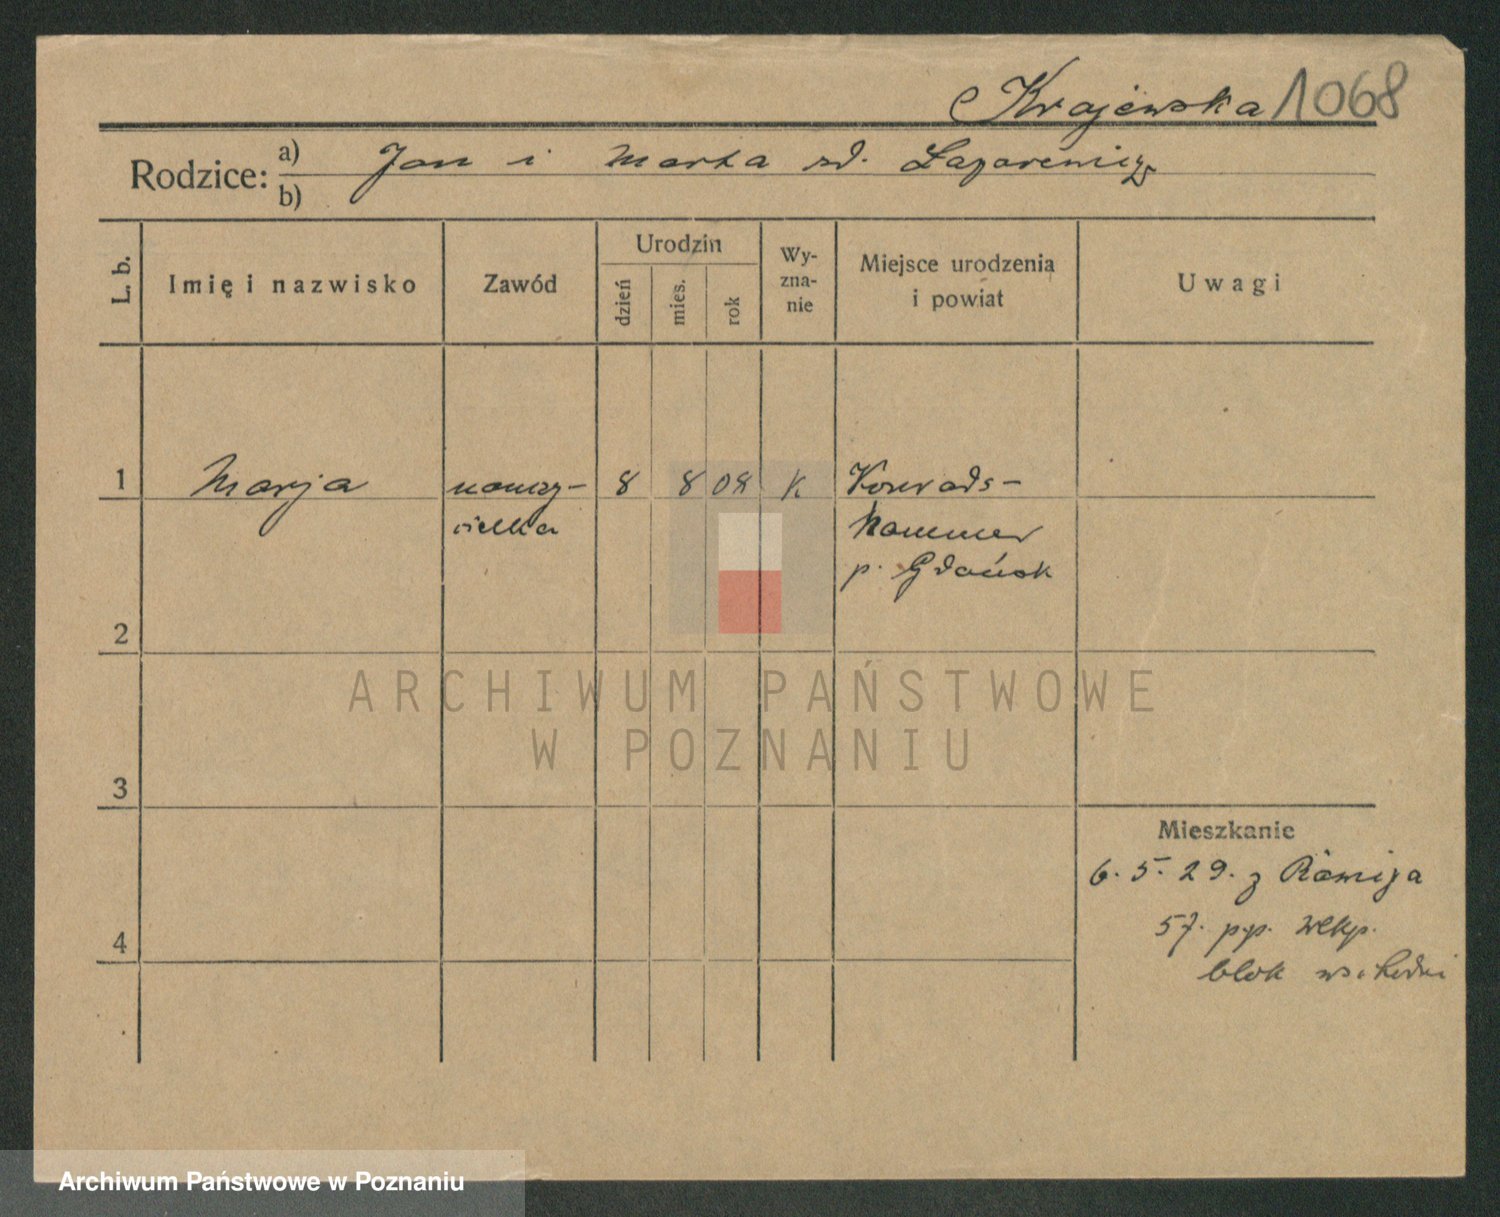 Krajewska 1068
Rodzice: a) Jan i Marta zd. Lazarewicz
b)
L. b.
Imię i nazwisko
Zawód
Urodzin
dzień
mies.
rok
Wy-
zna-
nie
Miejsce urodzenia
i powiat
Uwagi
1 Marja nauczy- 8 8 08 K Konrads-
cielka hammer
p. Gdańsk
2
3
4
Mieszkanie
6. 5. 29. z
57. p.p. Wlkp.
blok wschodni
ARCHIWUM PAŃSTWOWE
W POZNANIU
Archiwum Państwowe w Poznaniu